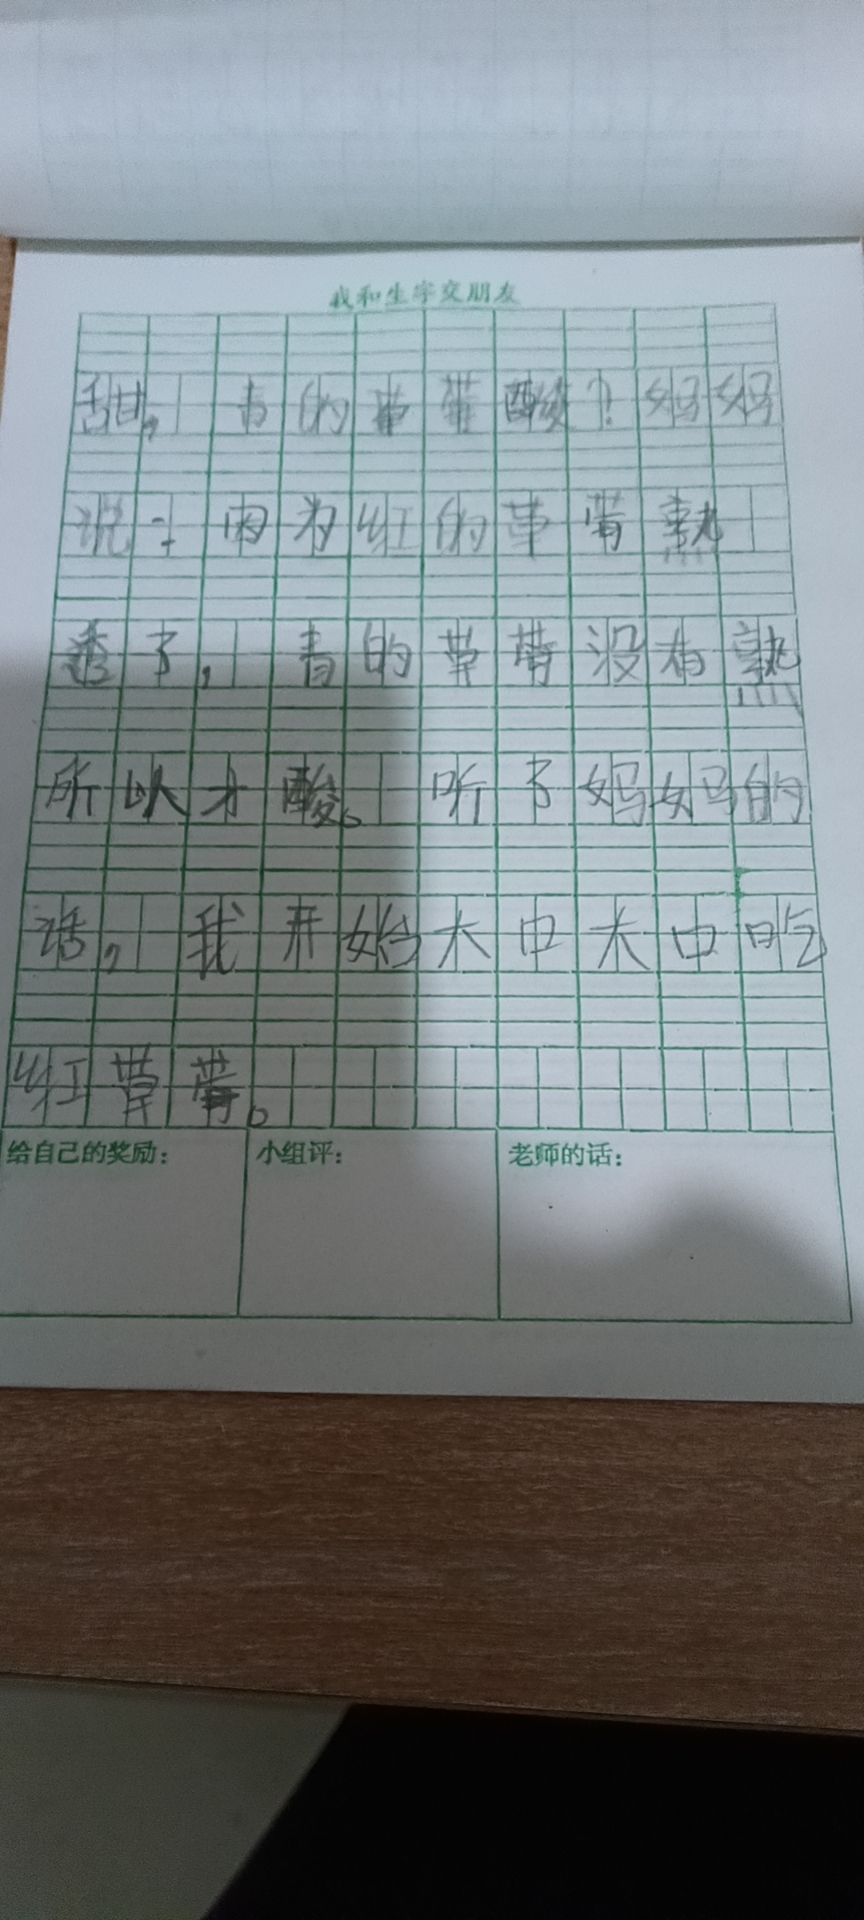 我和生字交朋友
甜，青的草莓酸？妈妈
说：因为红的草莓熟
透了，青的草莓没有熟
所以才酸。听了妈妈的
话，我开始大口大口吃
红草莓。
给自己的奖励： 小组评： 老师的话：